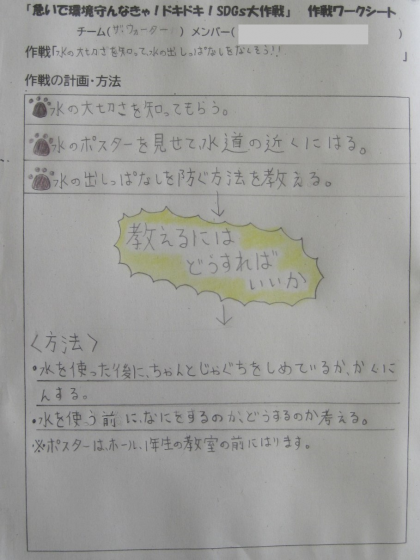 「急いで環境守んなきゃ！ドキドキ！SDGs大作戦」 作戦ワークシート
チーム(ザ・ウォーター) メンバー( )
作戦「水の大切さを知って、水の出しっぱなしをなくそう!! 」
作戦の計画・方法
水の大切さを知ってもらう。
水のポスターを見せて、水道の近くにはる。
水の出しっぱなしを防ぐ方法を教える。
教えるには
どうすれば
いいか
〈方法〉
・水を使った後に、ちゃんとじゃぐちをしめているか、かくに
んする。
・水を使う前に、なにをするのか、どうするのか考える。
※ポスターは、ホール、1年生の教室の前にはります。